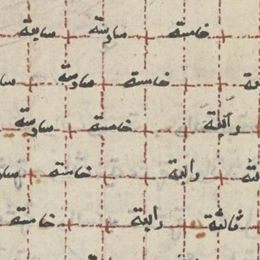 خامسة سادسة سابعة
خامسة سادسة
رابعة خامسة سادسة
رابعة خامسة
ثالثة رابعة خامسة